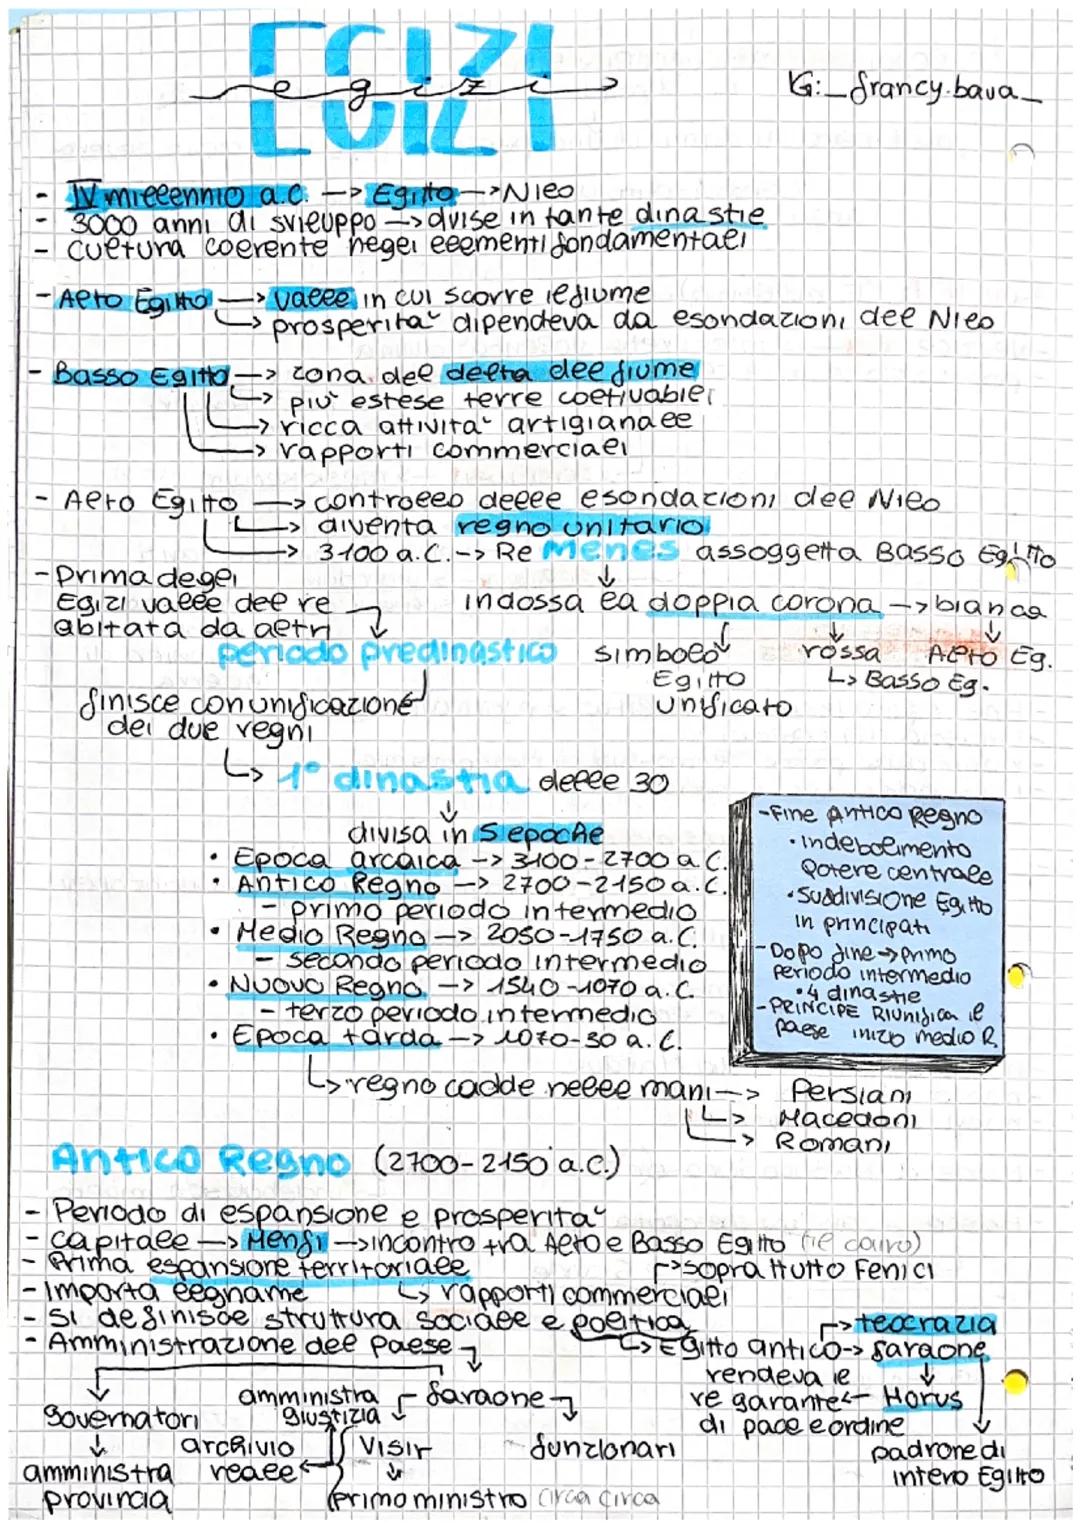 EGIZI
egizi
IG:_francy.bava_
- IV millennio a.C. -> Egitto -> Nilo
- 3000 anni di sviluppo -> divise in tante dinastie
- cultura coerente negli elementi fondamentali
- Alto Egitto -> valle in cui scorre il fiume
-> prosperità dipendeva da esondazioni del Nilo
- Basso Egitto -> zona del delta del fiume
-> più estese terre coltivabili
-> ricca attività artigianale
-> rapporti commerciali
- Alto Egitto -> controllo delle esondazioni del Nilo
-> diventa regno unitario
-> 3100 a.C. -> Re Menes assoggetta Basso Egitto
indossa la doppia corona -> bianca
simbolo Egitto unificato
rossa
-> Basso Eg.
Alto Eg.
- Prima degli
Egizi valle del re
abitata da altri
periodo predinastico
finisce con unificazione
dei due regni
-> 1° dinastia delle 30
divisa in 5 epoche
• Epoca arcaica -> 3100-2700 a.C.
• Antico Regno -> 2700-2150 a.C.
- primo periodo intermedio
• Medio Regno -> 2050-1750 a.C.
- secondo periodo intermedio
• Nuovo Regno -> 1540-1070 a.C.
- terzo periodo intermedio
• Epoca tarda -> 1070-30 a.C.
-> regno cadde nelle mani -> Persiani
-> Macedoni
-> Romani
- Fine Antico Regno
• indebolimento
potere centrale
• Suddivisione Egitto
in principati
- Dopo fine -> primo
periodo intermedio
• 4 dinastie
- PRINCIPE RIUnifica il
paese inizio medio R.
Antico Regno (2700-2150 a.C.)
- Periodo di espansione e prosperità
- capitale -> Menfi -> incontro tra Alto e Basso Egitto (il cairo)
- Prima espansione territoriale
-> soprattutto Fenici
- Importa legname -> rapporti commerciali
- Si definisce struttura sociale e politica
-> teocrazia
- Amministrazione del paese
-> Egitto antico -> faraone
rendeva il
re garante <- Horus
di pace e ordine
padrone di
intero Egitto
governatori
amministra
provincia
faraone
amministra
giustizia
archivio
reale
Visir
primo ministro circa circa
funzionari